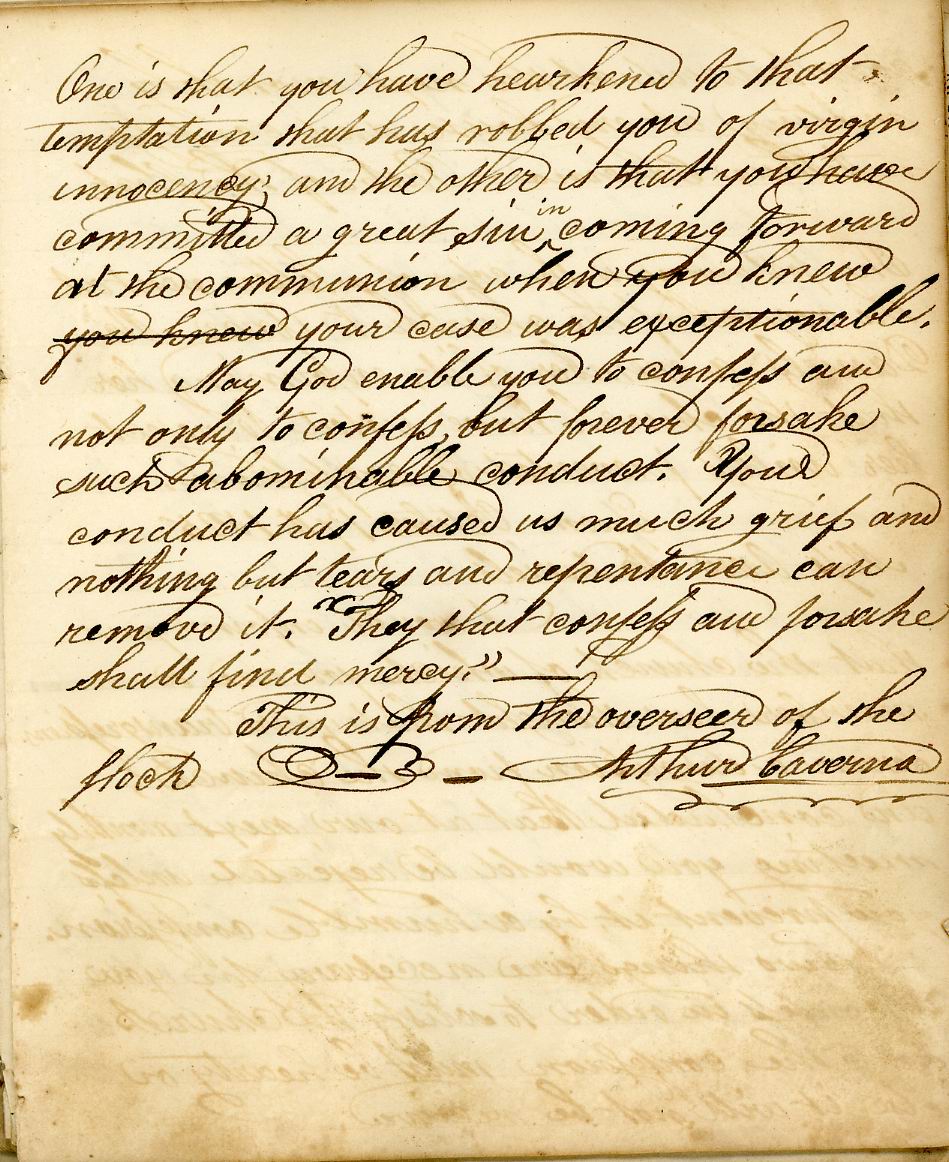 One is that you have hearkened to that
temptation that has robbed you of virgin
innocency; and the other is that you have
committed a great sin in coming forward
at the communion when you knew
you knew your case was exceptionable.
May God enable you to confess and
not only to confess, but forever forsake
such abominable conduct. Your
conduct has caused us much grief and
nothing but tears and repentance can
remove it. "They that confess and forsake
shall find mercy." —
This is from the overseer of the
flock — Arthur Caverno